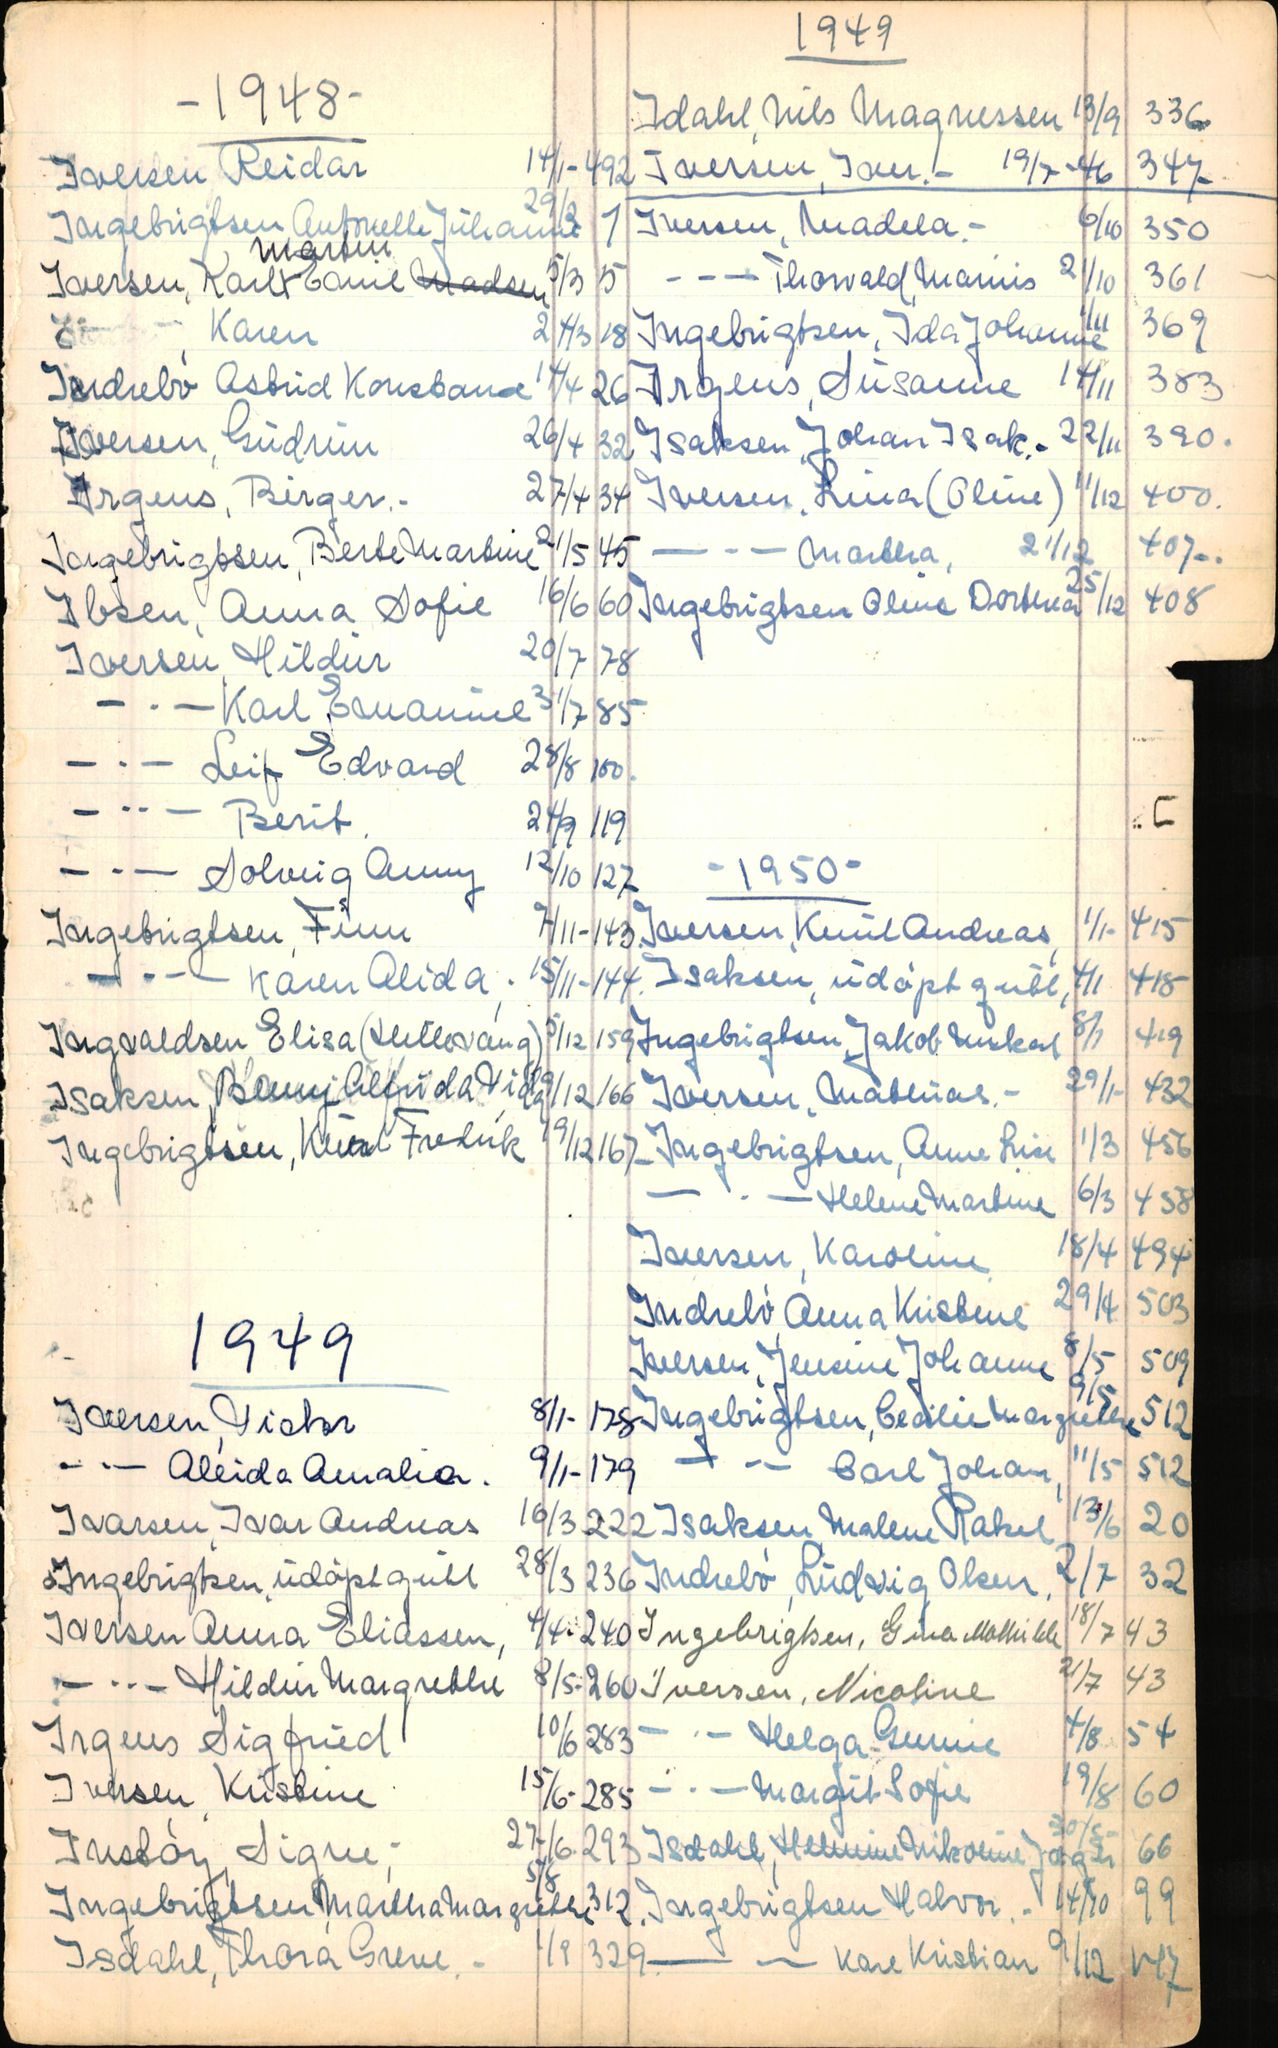 -1948-
Iversen Reidar 14/1- 492
Ingebrigtsen Antonette Julianne 29/2 1
Iversen, Karl Martin Emil Madsen 5/3 5
Karen 24/3 18
Indrebö Astrid Konstanse 14/4 26
Iversen, Gudrun 26/4 32
Irgens, Birger.- 27/4 34
Ingebrigtsen, Berte Martine 21/5 45
Ibsen, Anna Sofie 16/6 60
Iversen, Hildur 20/7 78
- . - Karl Emanuel 31/7 85
- . - Leif Edvard 28/8 100.
- .. - Berit. 24/9 119
- . - Solveig Anny 12/10 127
Ingebrigtsen, Finn 7/11- 143
- . - Karen Alida, 15/11- 144.
Ingvaldsen Elisa 5/12 159
Isaksen, Benny Alfrida 9/12 166
Ingebrigtsen, Knut Fredrik 19/12 167
1949
Iversen, Victor 8/1- 178
- . - Aleida Amalia. 9/1- 179
Ivarsen, Ivar Andreas 16/3 222
Ingebrigtsen, udöpt gutt 28/3 236
Iversen Anna Eliassen, 4/4- 240
- .. - Hildur Margrethe 8/5- 260
Irgens Sigfried 10/6 283
Iversen, Kristine 15/6- 285
Instöy, Signe, 27/6- 293
Ingebrigtsen, Martha Margrethe 5/8 312.
Isdahl, Thora Greve.- 1/9 329
1949
Idahl, Nils Magnussen 13/9 336
Iversen, Iver.- 19/7-46 347-
Iversen, Madela.- 6/10 350
- - - Thorvald, Marius 21/10 361
Ingebrigtsen, Ida Johanne 1/11 369
Irgens, Susanne 14/11 383
Isaksen, Johan Isak.- 22/11 390.
Iversen, Lina (Oline) 11/12 400.
- - - Martha, 21/12 407-.
Ingebrigtsen Oline Dorthea 25/12 408
-1950-
Iversen, Knut Andreas, 1/1- 415
Isaksen, udöpt gutt, 4/1 418
Ingebrigtsen, Jakob 8/1 419
Iversen, Mathias.- 29/1- 432
Ingebrigtsen, Anne Lise 1/3 456
- . - Helene Martine 6/3 458
Iversen, Karoline 18/4 494
Indrebö, Anna Kristine 29/4 503
Iversen, Jensine Johanne 8/5 509
Ingebrigtsen, Cecilie Margrethe 9/5 512
- - - Carl Johan, 11/5 512
Isaksen, Malene Rakel 13/6 20
Indrebö, Ludvig Olsen, 2/7 32
Ingebrigtsen, Gina Mathilde 18/7 43
Iversen, Nicoline 21/7 43
- . - Helga Gunnie 4/8 54
- . - Margit Sofie 19/8 60
Isdahl, Helmine Nikoline 30/8- 66
Ingebrigtsen Halvor.- 14/10 99
- - Kare Kristian 9/12 147